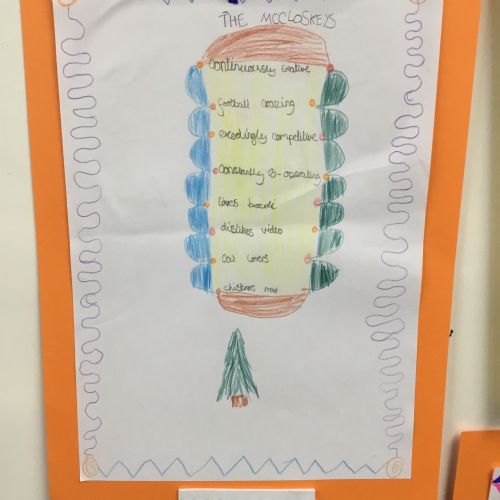 THE MCCLOSKEYS
continuously creative
football crazing
exceedingly competitive
constantly co-operating
loves
dislikes video
cat lovers
christmas mad